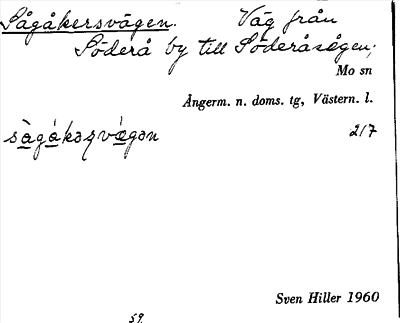 Sågåkersvägen. Väg från
Söderå by till Söderåsågen;
Mo sn
Ångerm. n. doms. tg, Västern. l.
2/7
Sven Hiller 1960
59